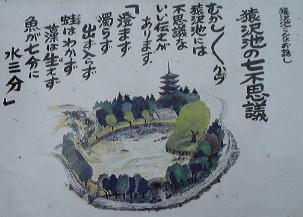 猿沢池こんなお話し
猿沢池の七不思議
むかし〱から
猿沢池には
不思議な
いい伝えが
あります
「澄まず
濁らず
出ず入らず
蛙はわかず
藻は生えず
魚が七分に
水三分」